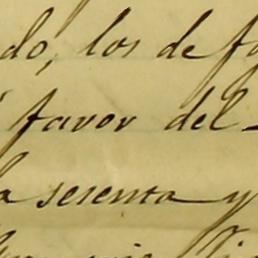 do, los de fa
favor del
a sesenta y